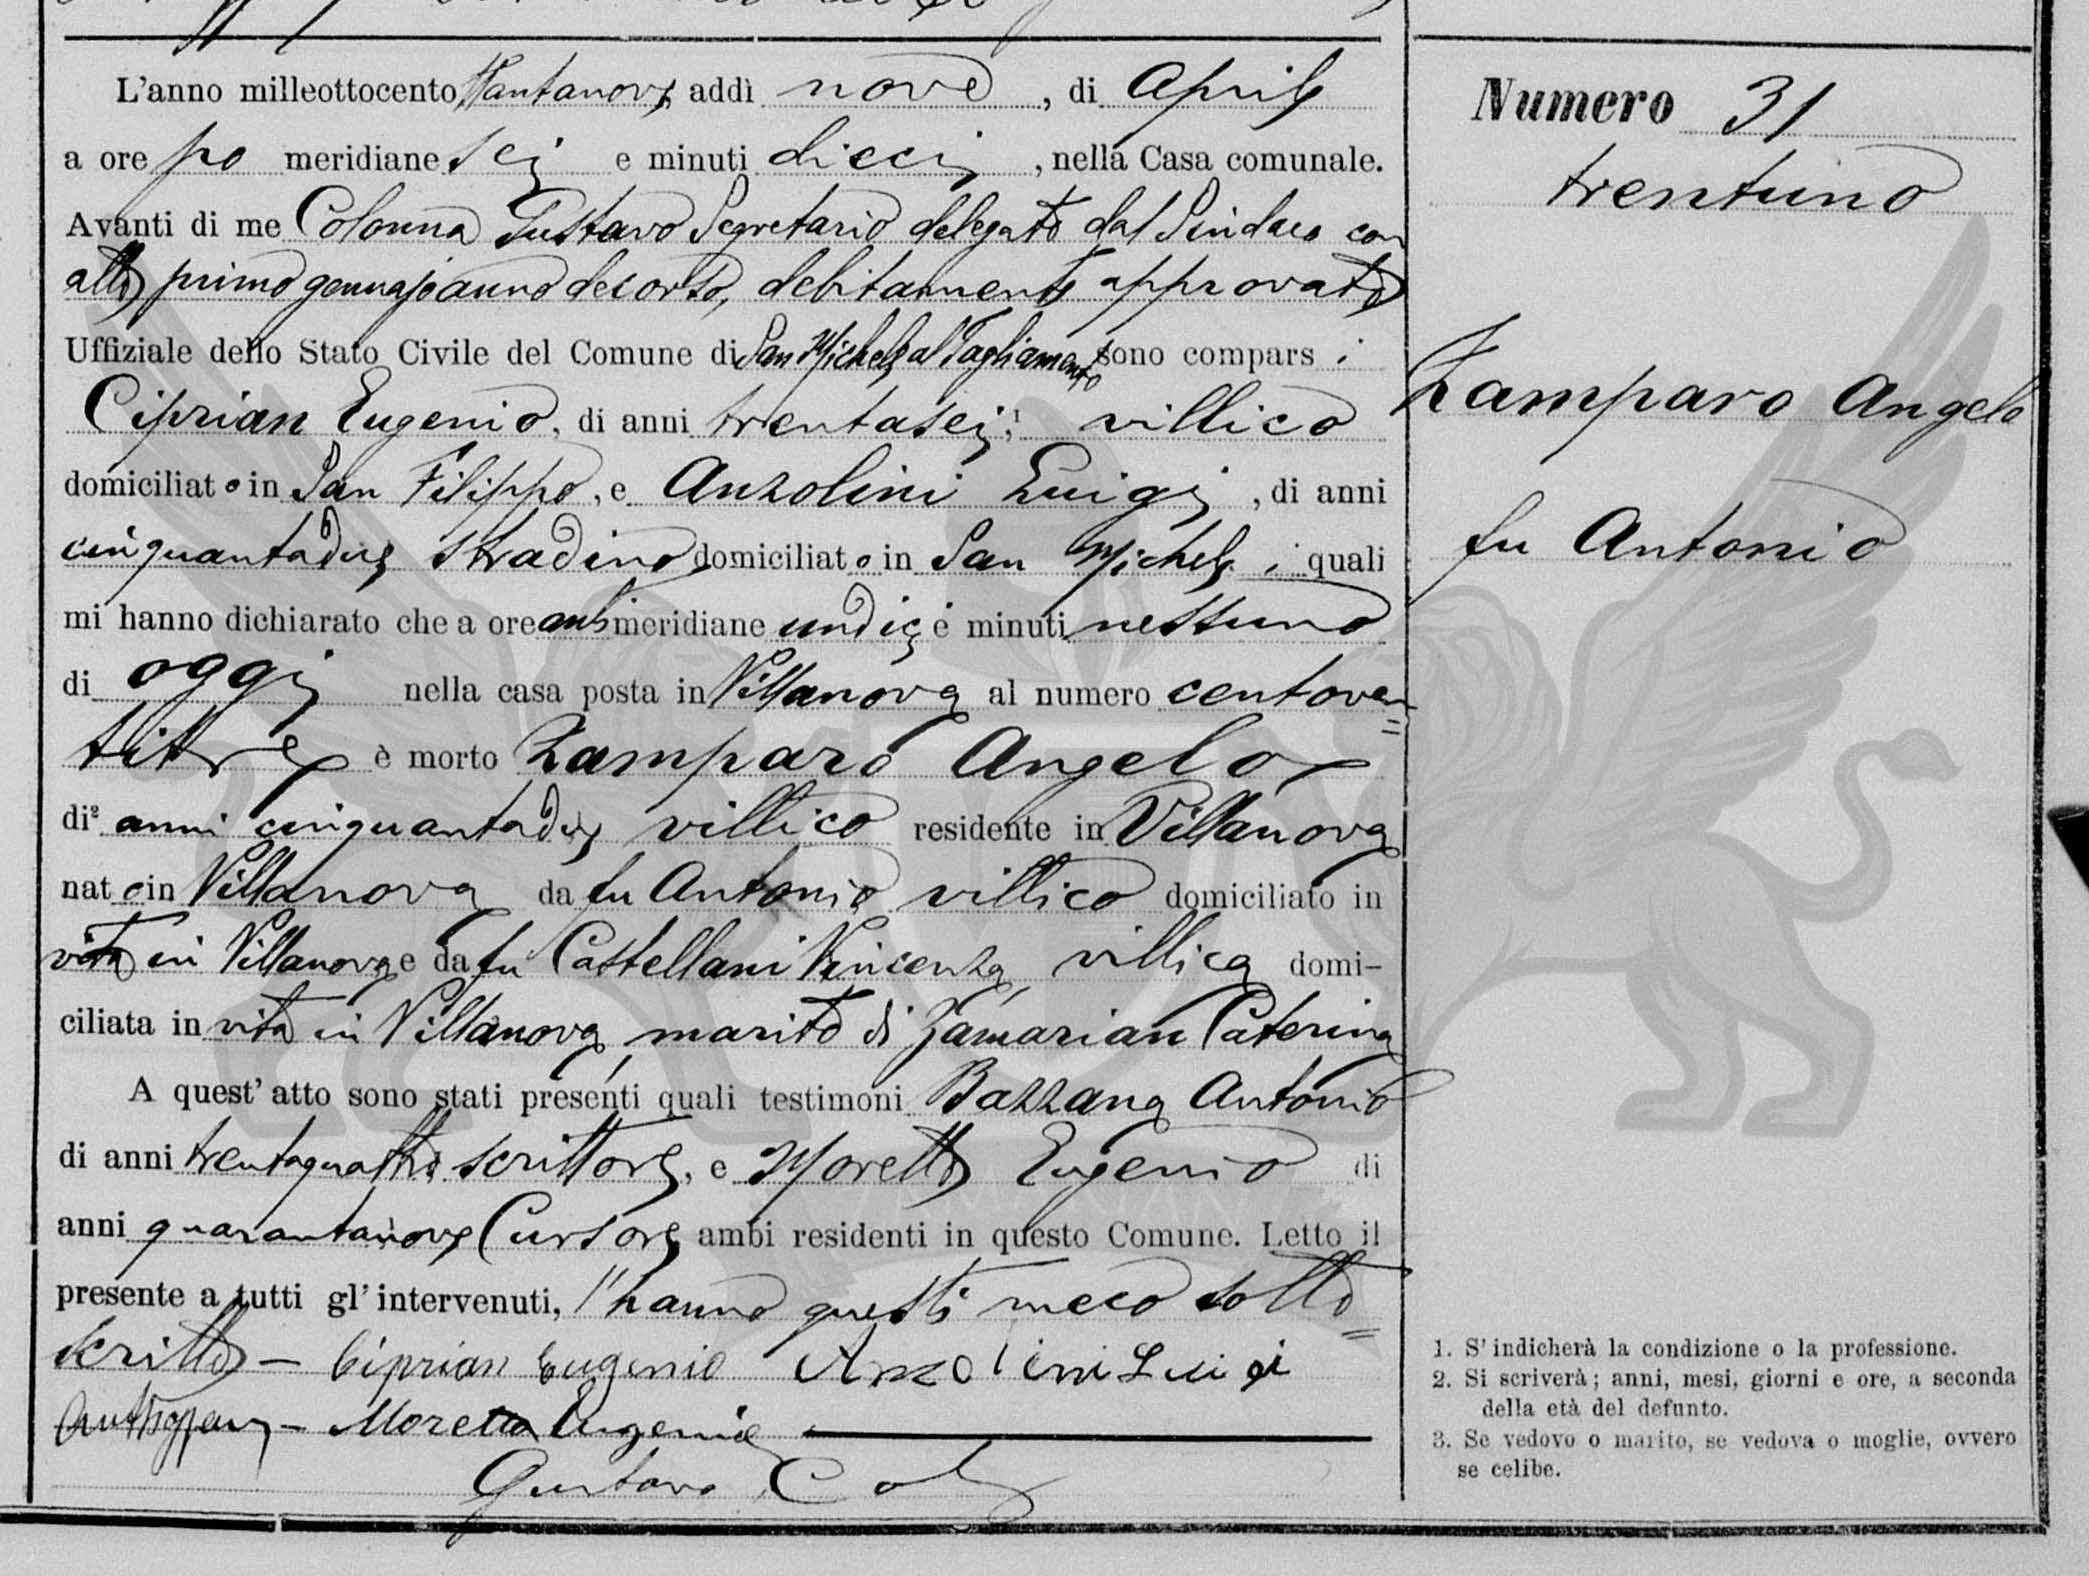 L'anno milleottocento ottantanove, addì nove, di Aprile
a ore po meridiane sei e minuti dieci, nella Casa comunale.
Avanti di me Colonna Gustavo Segretario delegato dal Sindaco con
atto primo gennajo anno decorso, debitamente approvato
Uffiziale dello Stato Civile del Comune di San Michele al Tagliamento sono compars i
Ciprian Eugenio, di anni trentasei,¹ villico
domiciliato in San Filippo, e Anzolini Luigi, di anni
cinquantadue stradino domiciliato in San Michele i quali
mi hanno dichiarato che a ore anti meridiane undici e minuti nessuno
di oggi nella casa posta in Villanova al numero centoven=
titre è morto Zamparo Angelo
di² anni cinquantadue villico residente in Villanova
nato in Villanova da fu Antonio villico domiciliato in
vita in Villanova e da fu Castellani Vincenza villica domi-
ciliata in vita in Villanova marito di Zamarian Caterina
A quest' atto sono stati presenti quali testimoni Bazzana Antonio
di anni trentaquattro scrittore, e Moretto Eugenio di
anni quarantanove Cursore, ambi residenti in questo Comune. Letto il
presente a tutti gl' intervenuti, l'hanno questi meco sotto=
scritto – Ciprian Eugenio Anzolini Luigi
– Moretto Eugenio
Gustavo
Numero 31
trentuno
Zamparo Angelo
fu Antonio
1. S' indicherà la condizione o la professione.
2. Si scriverà; anni, mesi, giorni e ore, a seconda
della età del defunto.
3. Se vedovo o marito, se vedova o moglie, ovvero
se celibe.